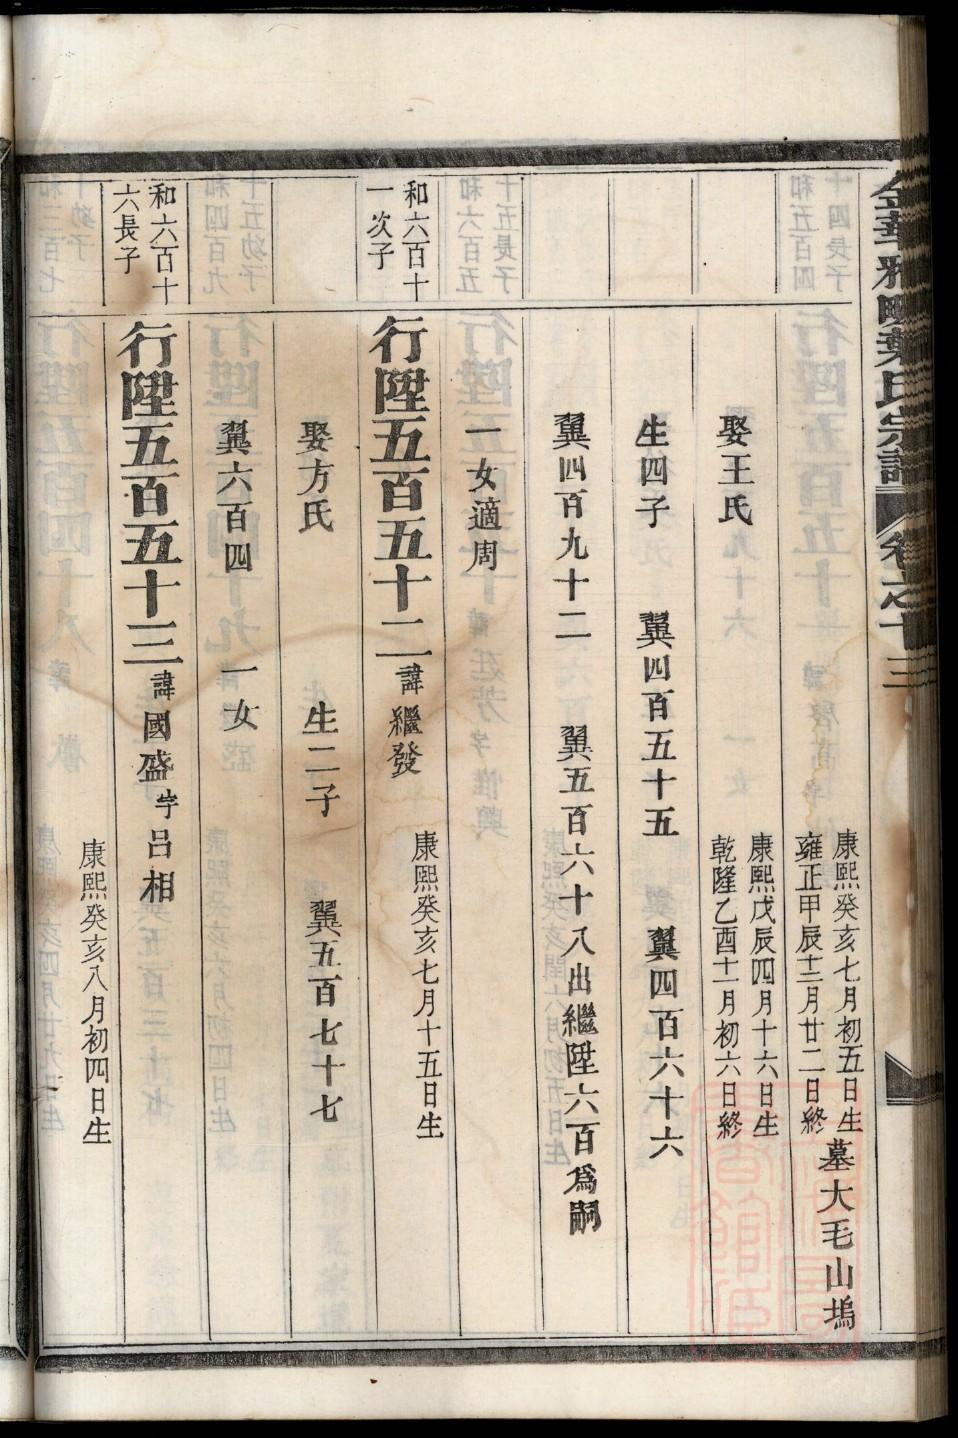 金華雅畈葉氏宗譜 卷之十三
康熙癸亥七月初五日生
雍正甲辰十二月廿二日終
墓大毛山塢
娶王氏
康熙戊辰四月十六日生
乾隆乙酉十一月初六日終
生四子 翼四百五十五 翼四百六十六
翼四百九十二 翼五百六十八出繼陞六百爲嗣
一女適周
和六百十
一次子
行陞五百五十二諱繼發
康熙癸亥七月十五日生
娶方氏 生二子 翼五百七十七
翼六百四 一女
和六百十
六長子
行陞五百五十三諱國盛字呂相
康熙癸亥八月初四日生